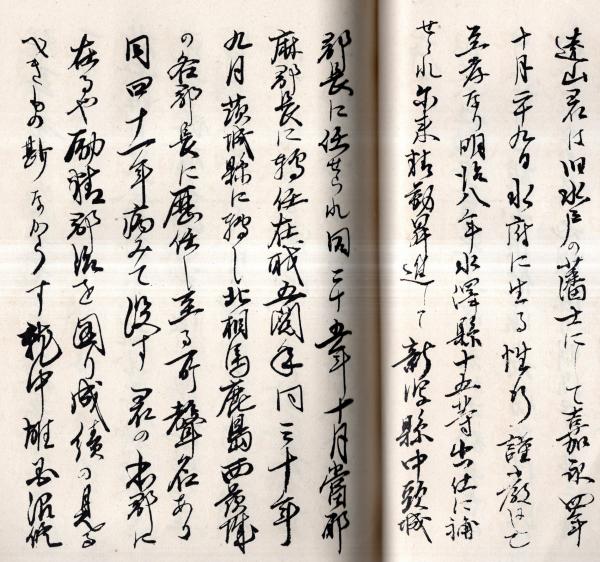 遠山君は旧水戸の藩士にして嘉永四年
十月二十九日水府に生る性行謹厳
至孝なり明治八年水澤縣十五等出仕に補
せられ尓来精勤昇進して新潟縣中頸城
郡長に任せられ同二十五年十月當郡
麻郡長に轉任在職五閲年同三十年
九月茨城縣に轉し北相馬鹿島西茨城
の各郡長に歴任し至る所聲名あり
同四十一年病みて没す君の本郡に
在るや励精郡治を図り成績の見る
べきもの尠なからす就中雄国沼